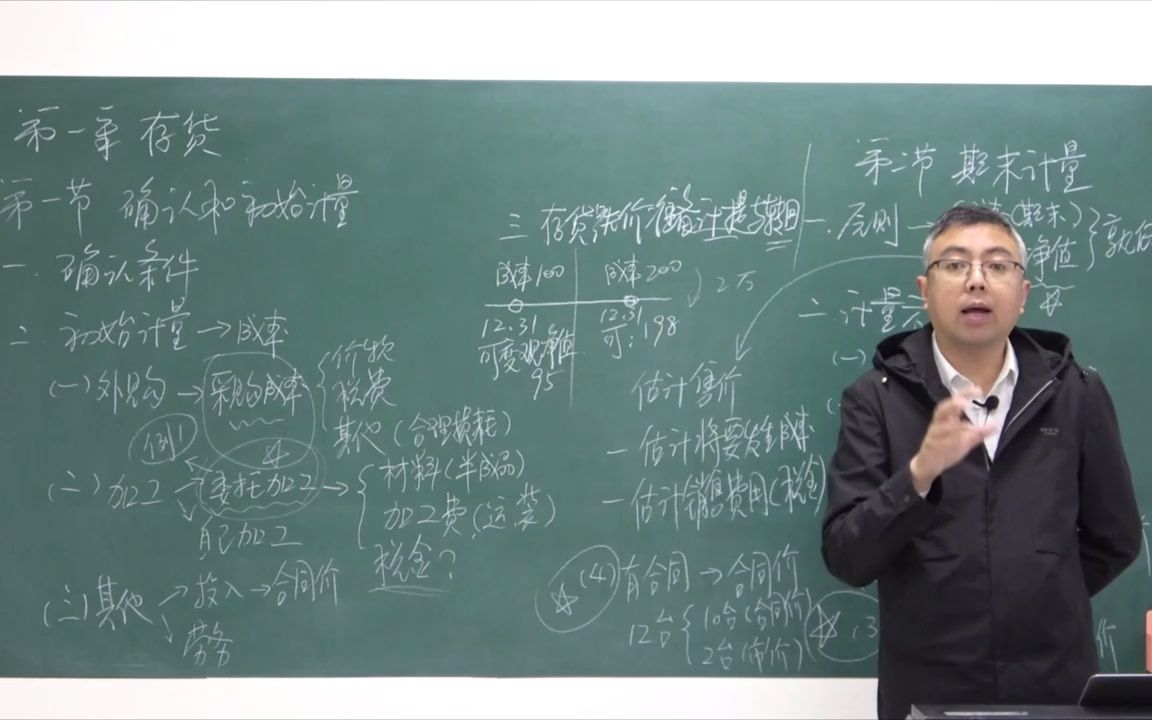 第一章 存货
第一节 确认和初始计量
一. 确认条件
二. 初始计量→成本
(一)外购→采购成本
价款
税费
其他(合理损耗)
例1
(二)加工
委托加工→
材料(半成品)
加工费(运、装)
税金?
自己加工
(三)其他
投入→合同价
劳务
三 存货跌价准备计提与转回
成本100
成本200
2万
12.31
可变现净值
95
12.31
可:198
估计售价
一估计将要发生成本
一估计销售费用(税金)
(4)有合同→合同价
12台
10台(合同价)
2台(市价)
第二节 期末计量
一.原则
(期末)
净值
二.计量
(一)
价